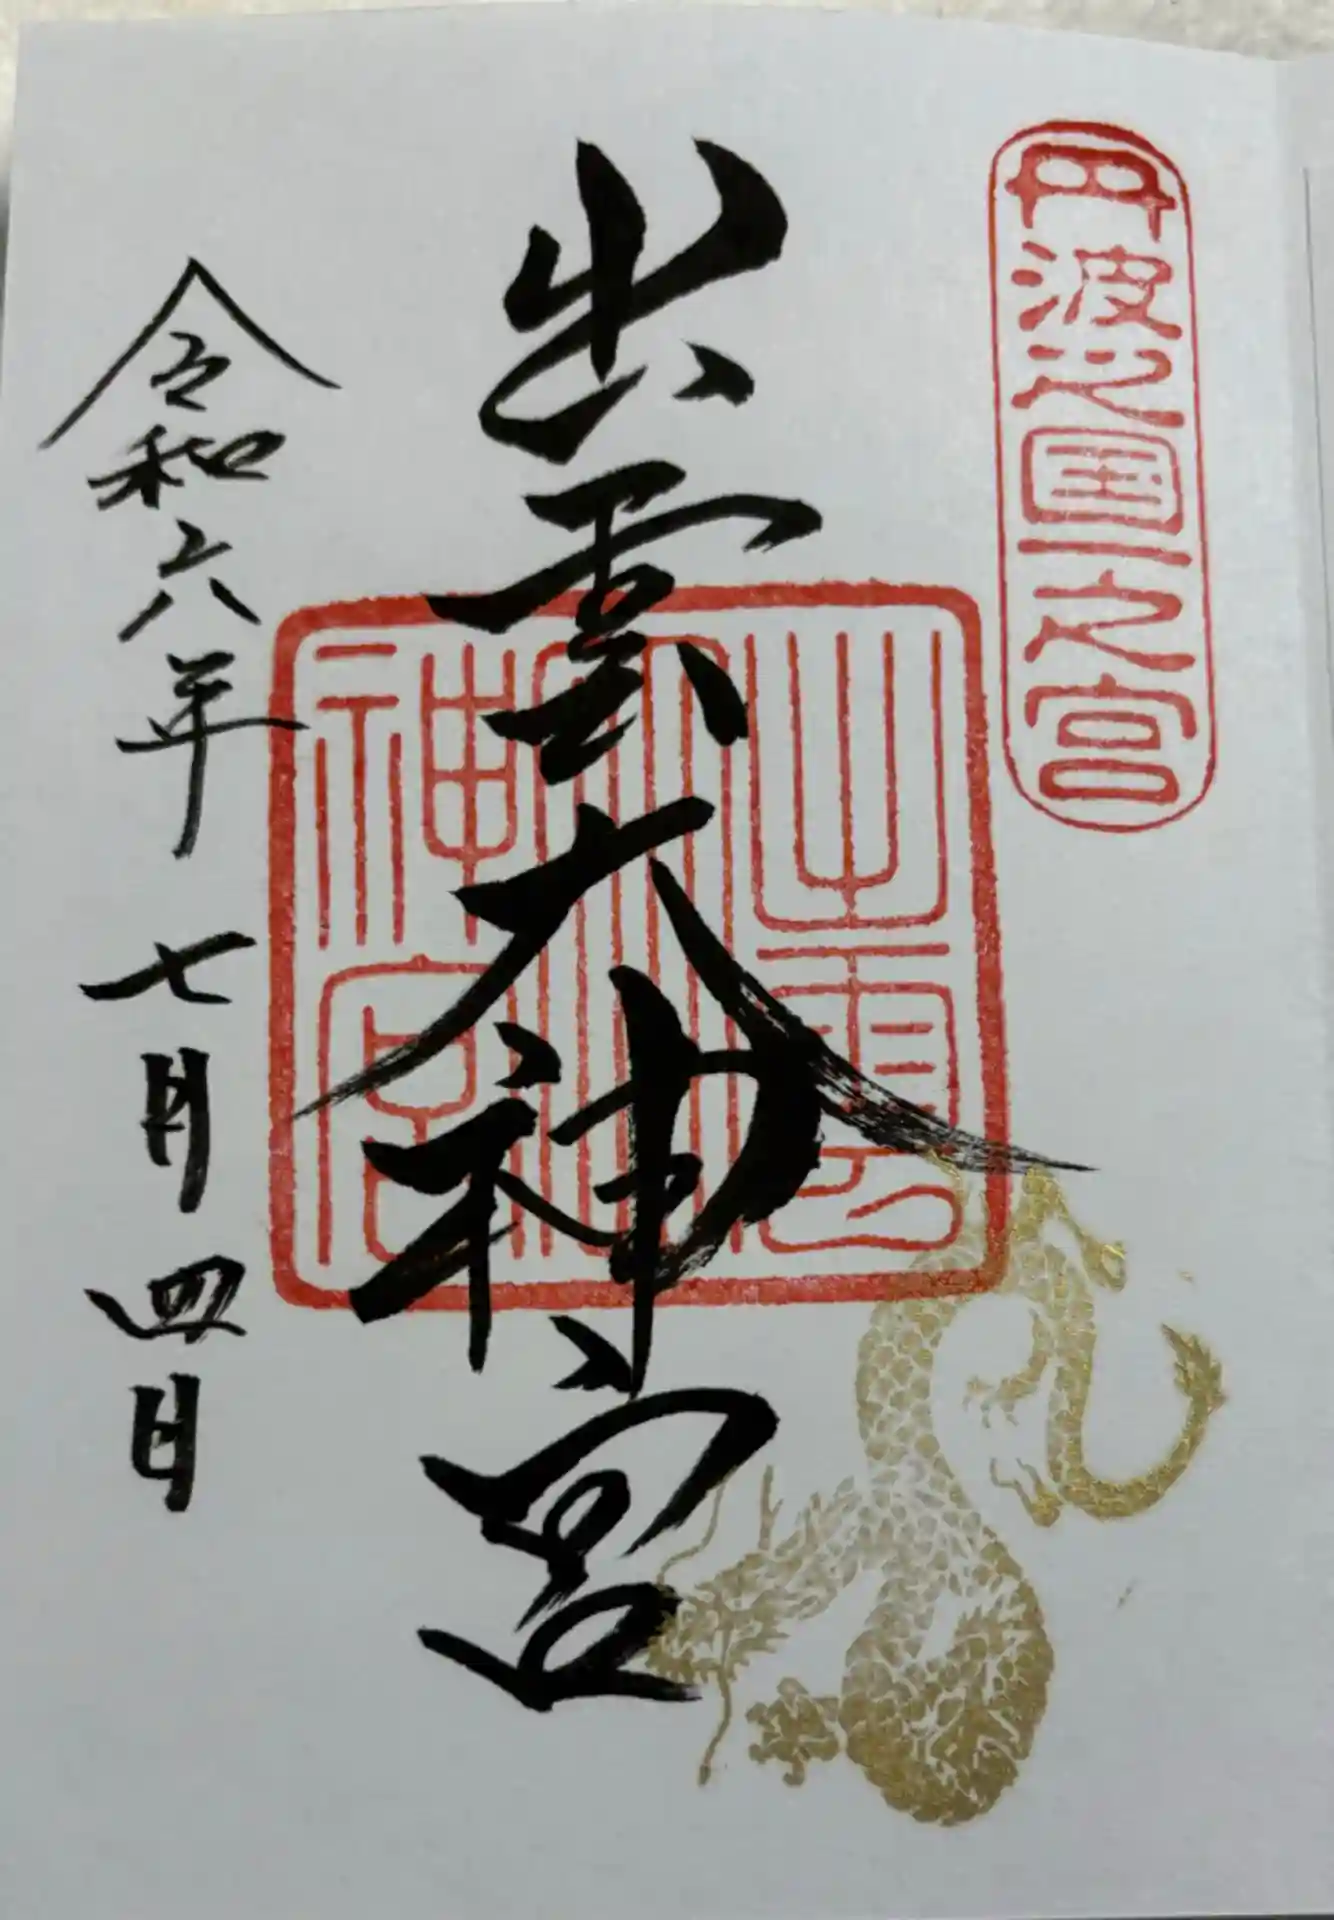 丹波之國一之宮
出雲大神宮
出雲大神宮
令和六年 七月四日